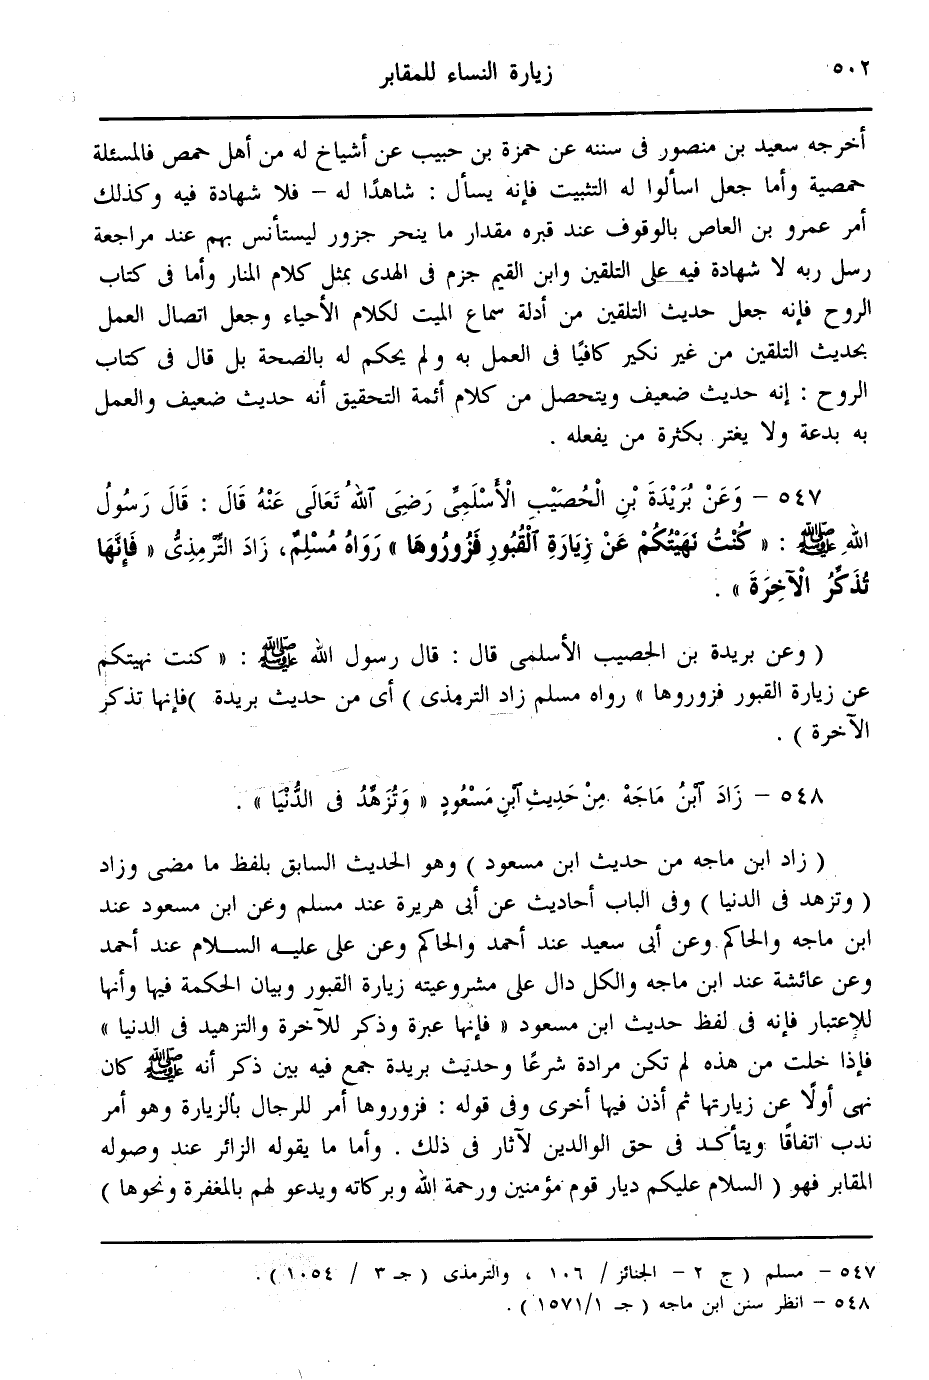 ٥٠٢
زيارة النساء للمقابر
أخرجه سعيد بن منصور فى سننه عن حمزة بن حبيب عن أشياخ له من أهل حمص فالمسئلة
حمصية وأما جعل اسألوا له التثبيت فإنه يسأل : شاهدًا له – فلا شهادة فيه وكذلك
أمر عمرو بن العاص بالوقوف عند قبره مقدار ما ينحر جزور ليستأنس بهم عند مراجعة
رسل ربه لا شهادة فيه على التلقين وابن القيم جزم فى الهدى بمثل كلام المنار وأما فى كتاب
الروح فإنه جعل حديث التلقين من أدلة سماع الميت لكلام الأحياء وجعل اتصال العمل
بحديث التلقين من غير نكير كافيًا فى العمل به ولم يحكم له بالصحة بل قال فى كتاب
الروح : إنه حديث ضعيف ويتحصل من كلام أئمة التحقيق أنه حديث ضعيف والعمل
به بدعة ولا يغتر بكثرة من يفعله .
٥٤٧ – وَعَنْ بُرَيْدَةَ بْنِ الْحُصَيْبِ الْأَسْلَمِىِّ رَضِىَ ٱللهُ تَعَالَى عَنْهُ قَالَ : قَالَ رَسُولُ
اللهِ ﷺ : « كُنْتُ نَهَيْتُكُمْ عَنْ زِيَارَةِ ٱلْقُبُورِ فَزُورُوهَا » رَوَاهُ مُسْلِمٌ، زَادَ التِّرْمِذِىُّ « فَإِنَّهَا
تُذَكِّرُ الْآخِرَةَ » .
( وعن بريدة بن الحصيب الأسلمى قال : قال رسول الله ﷺ : « كنت نهيتكم
عن زيارة القبور فزوروها » رواه مسلم زاد الترمذى ) أى من حديث بريدة )فإنها تذكر
الآخرة ) .
٥٤٨ – زَادَ ٱبْنُ مَاجَهْ مِنْ حَدِيثِ ٱبْنِ مَسْعُودٍ « وَتُزَهِّدُ فى الدُّنْيَا » .
( زاد ابن ماجه من حديث ابن مسعود ) وهو الحديث السابق بلفظ ما مضى وزاد
( وتزهد فى الدنيا ) وفى الباب أحاديث عن أبى هريرة عند مسلم وعن ابن مسعود عند
ابن ماجه والحاكم وعن أبى سعيد عند أحمد والحاكم وعن على عليه السلام عند أحمد
وعن عائشة عند ابن ماجه والكل دال على مشروعيته زيارة القبور وبيان الحكمة فيها وأنها
للإعتبار فإنه فى لفظ حديث ابن مسعود « فإنها عبرة وذكر للآخرة والتزهيد فى الدنيا »
فإذا خلت من هذه لم تكن مرادة شرعًا وحديث بريدة جمع فيه بين ذكر أنه ﷺ كان
نهى أولًا عن زيارتها ثم أذن فيها أخرى وفى قوله : فزوروها أمر للرجال بالزيارة وهو أمر
ندب اتفاقًا ويتأكد فى حق الوالدين لآثار فى ذلك . وأما ما يقوله الزائر عند وصوله
المقابر فهو ( السلام عليكم ديار قوم مؤمنين ورحمة الله وبركاته ويدعو لهم بالمغفرة ونحوها )
٥٤٧ – مسلم ( ج ٢ – الجنائز / ١٠٦ ، والترمذى ( جـ ٣ / ١٠٥٤ ) .
٥٤٨ – انظر سنن ابن ماجه ( جـ ١/١٥٧١ ) .